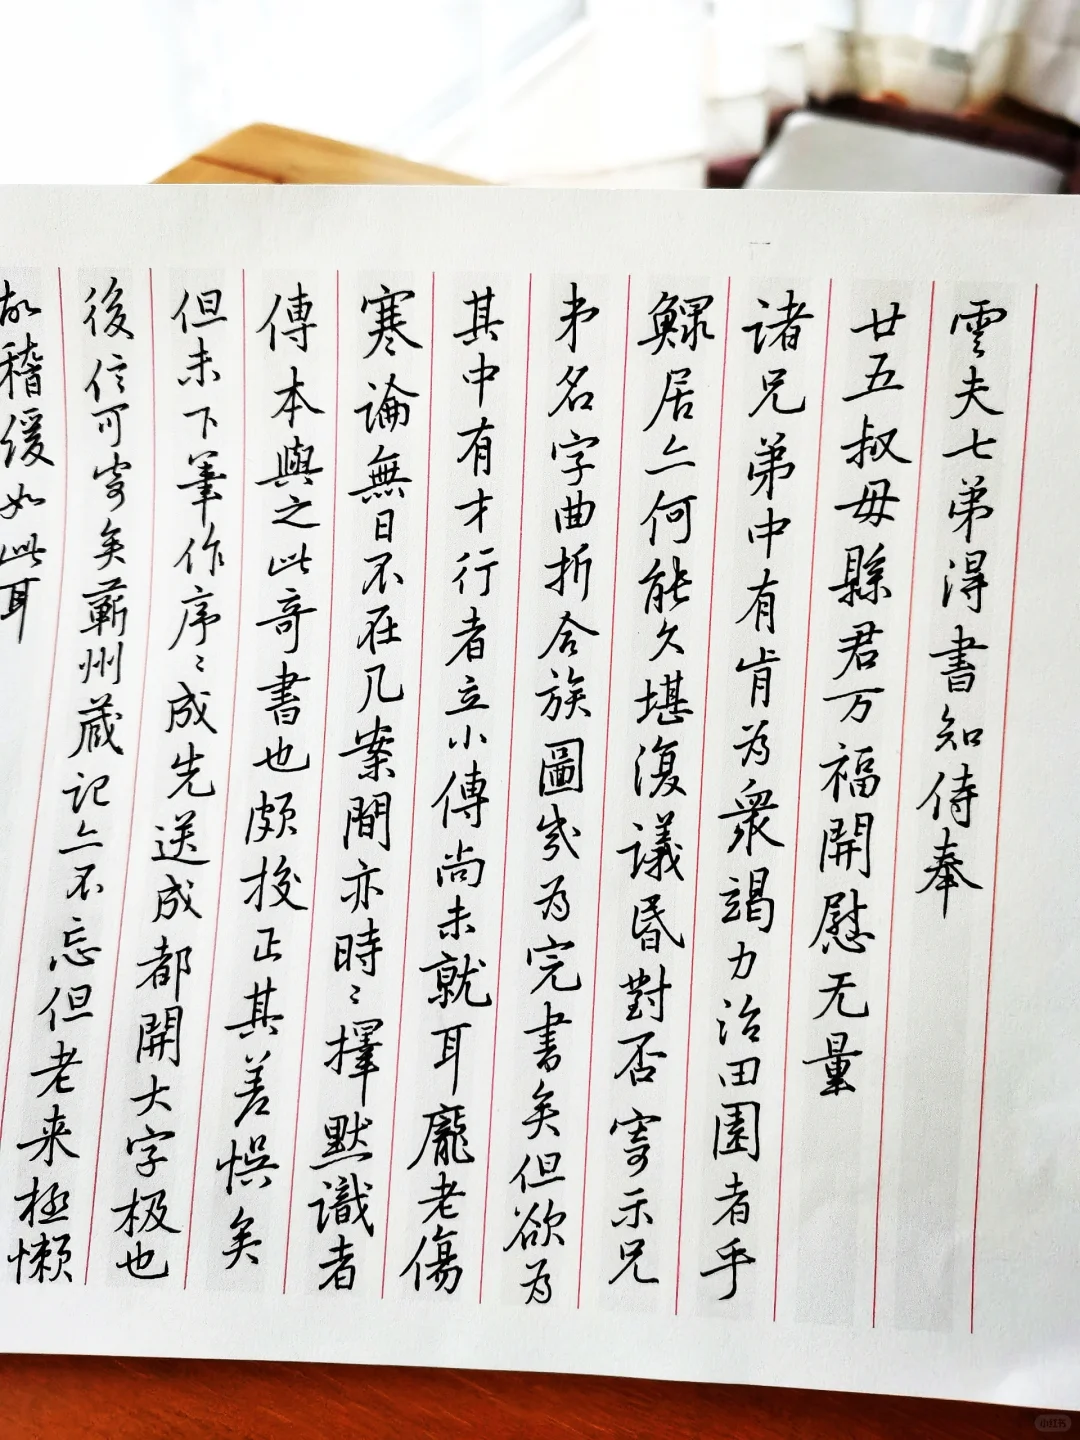 雲夫七弟得書知侍奉
廿五叔母縣君万福開慰无量
諸兄弟中有肯為衆竭力治田園者乎
鰥居亠何能久堪復議昏對否寄示兄
弟名字曲折合族圖岁為完書矣但欲為
其中有才行者立小傳尚未就耳龐老傷
寒論無日不在几案間亦時〻擇默識者
傳本與之此奇書也頗挍正其善悮矣
但未下筆作序〻成先送成都開大字极也
後信可寄矣蘄州蔵记亠不忘但老来極懒
故稽缓如此耳
小红书